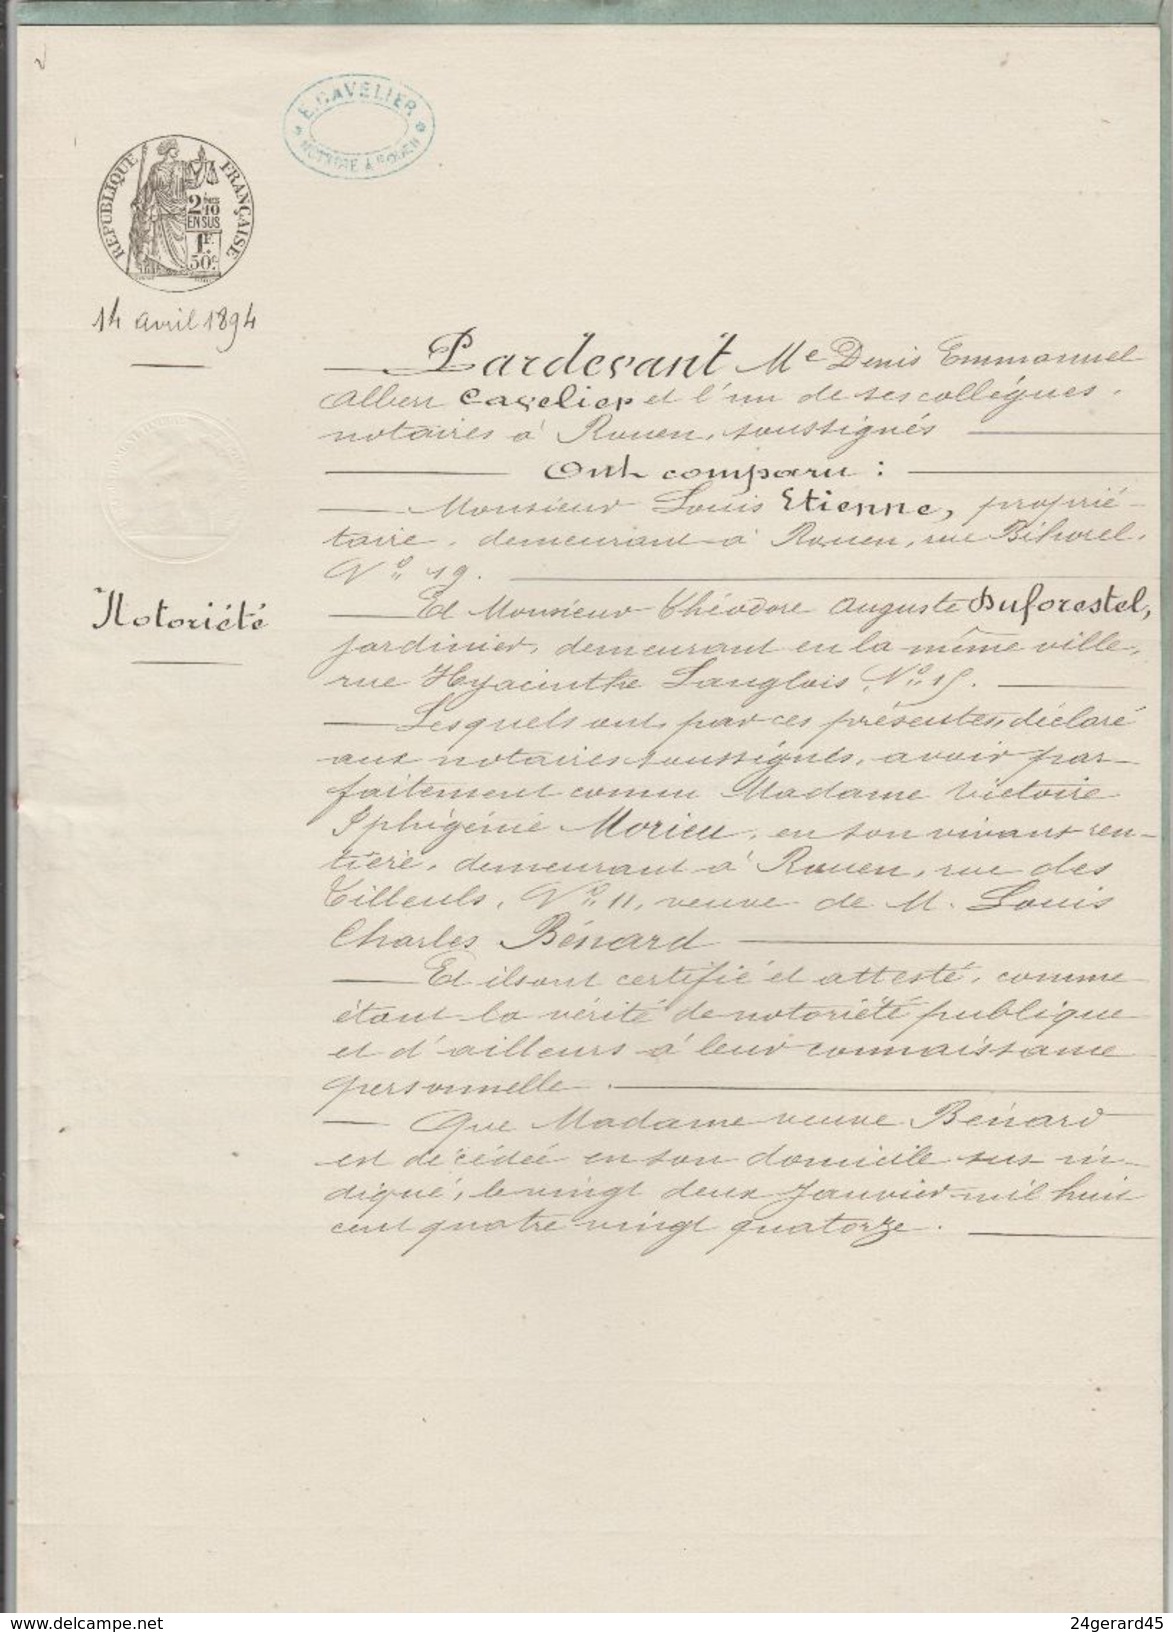 E. CAVELIER
NOTAIRE A ROUEN
RÉPUBLIQUE FRANÇAISE
2 10
EN SUS
1F.
50c
14 avril 1894
Notoriété
Pardevant Me Denis Emmanuel
Albert Cavelier et l'un de ses collègues,
notaires à Rouen, soussignés
Ont comparu :
Monsieur Louis Etienne, proprié-
taire, demeurant à Rouen, rue Bihorel,
No 19.
Et Monsieur Théodore Auguste Duforestel,
jardinier, demeurant en la même ville,
rue Hyacinthe Langlois, No 15.
Lesquels ont, par ces présentes, déclaré
aux notaires soussignés, avoir par-
faitement connu Madame Victoire
Iphigénie Morieu, en son vivant ren-
tière, demeurant à Rouen, rue des
Tilleuls, No 11, veuve de M. Louis
Charles Bénard
Et ils ont certifié et attesté, comme
étant la vérité de notoriété publique
et d'ailleurs à leur connaissance
personnelle.
Que Madame veuve Bénard
est décédée en son domicile sus in-
diqué, le vingt deux Janvier mil huit
cent quatre vingt quatorze.
www.delcampe.net
24gerard45